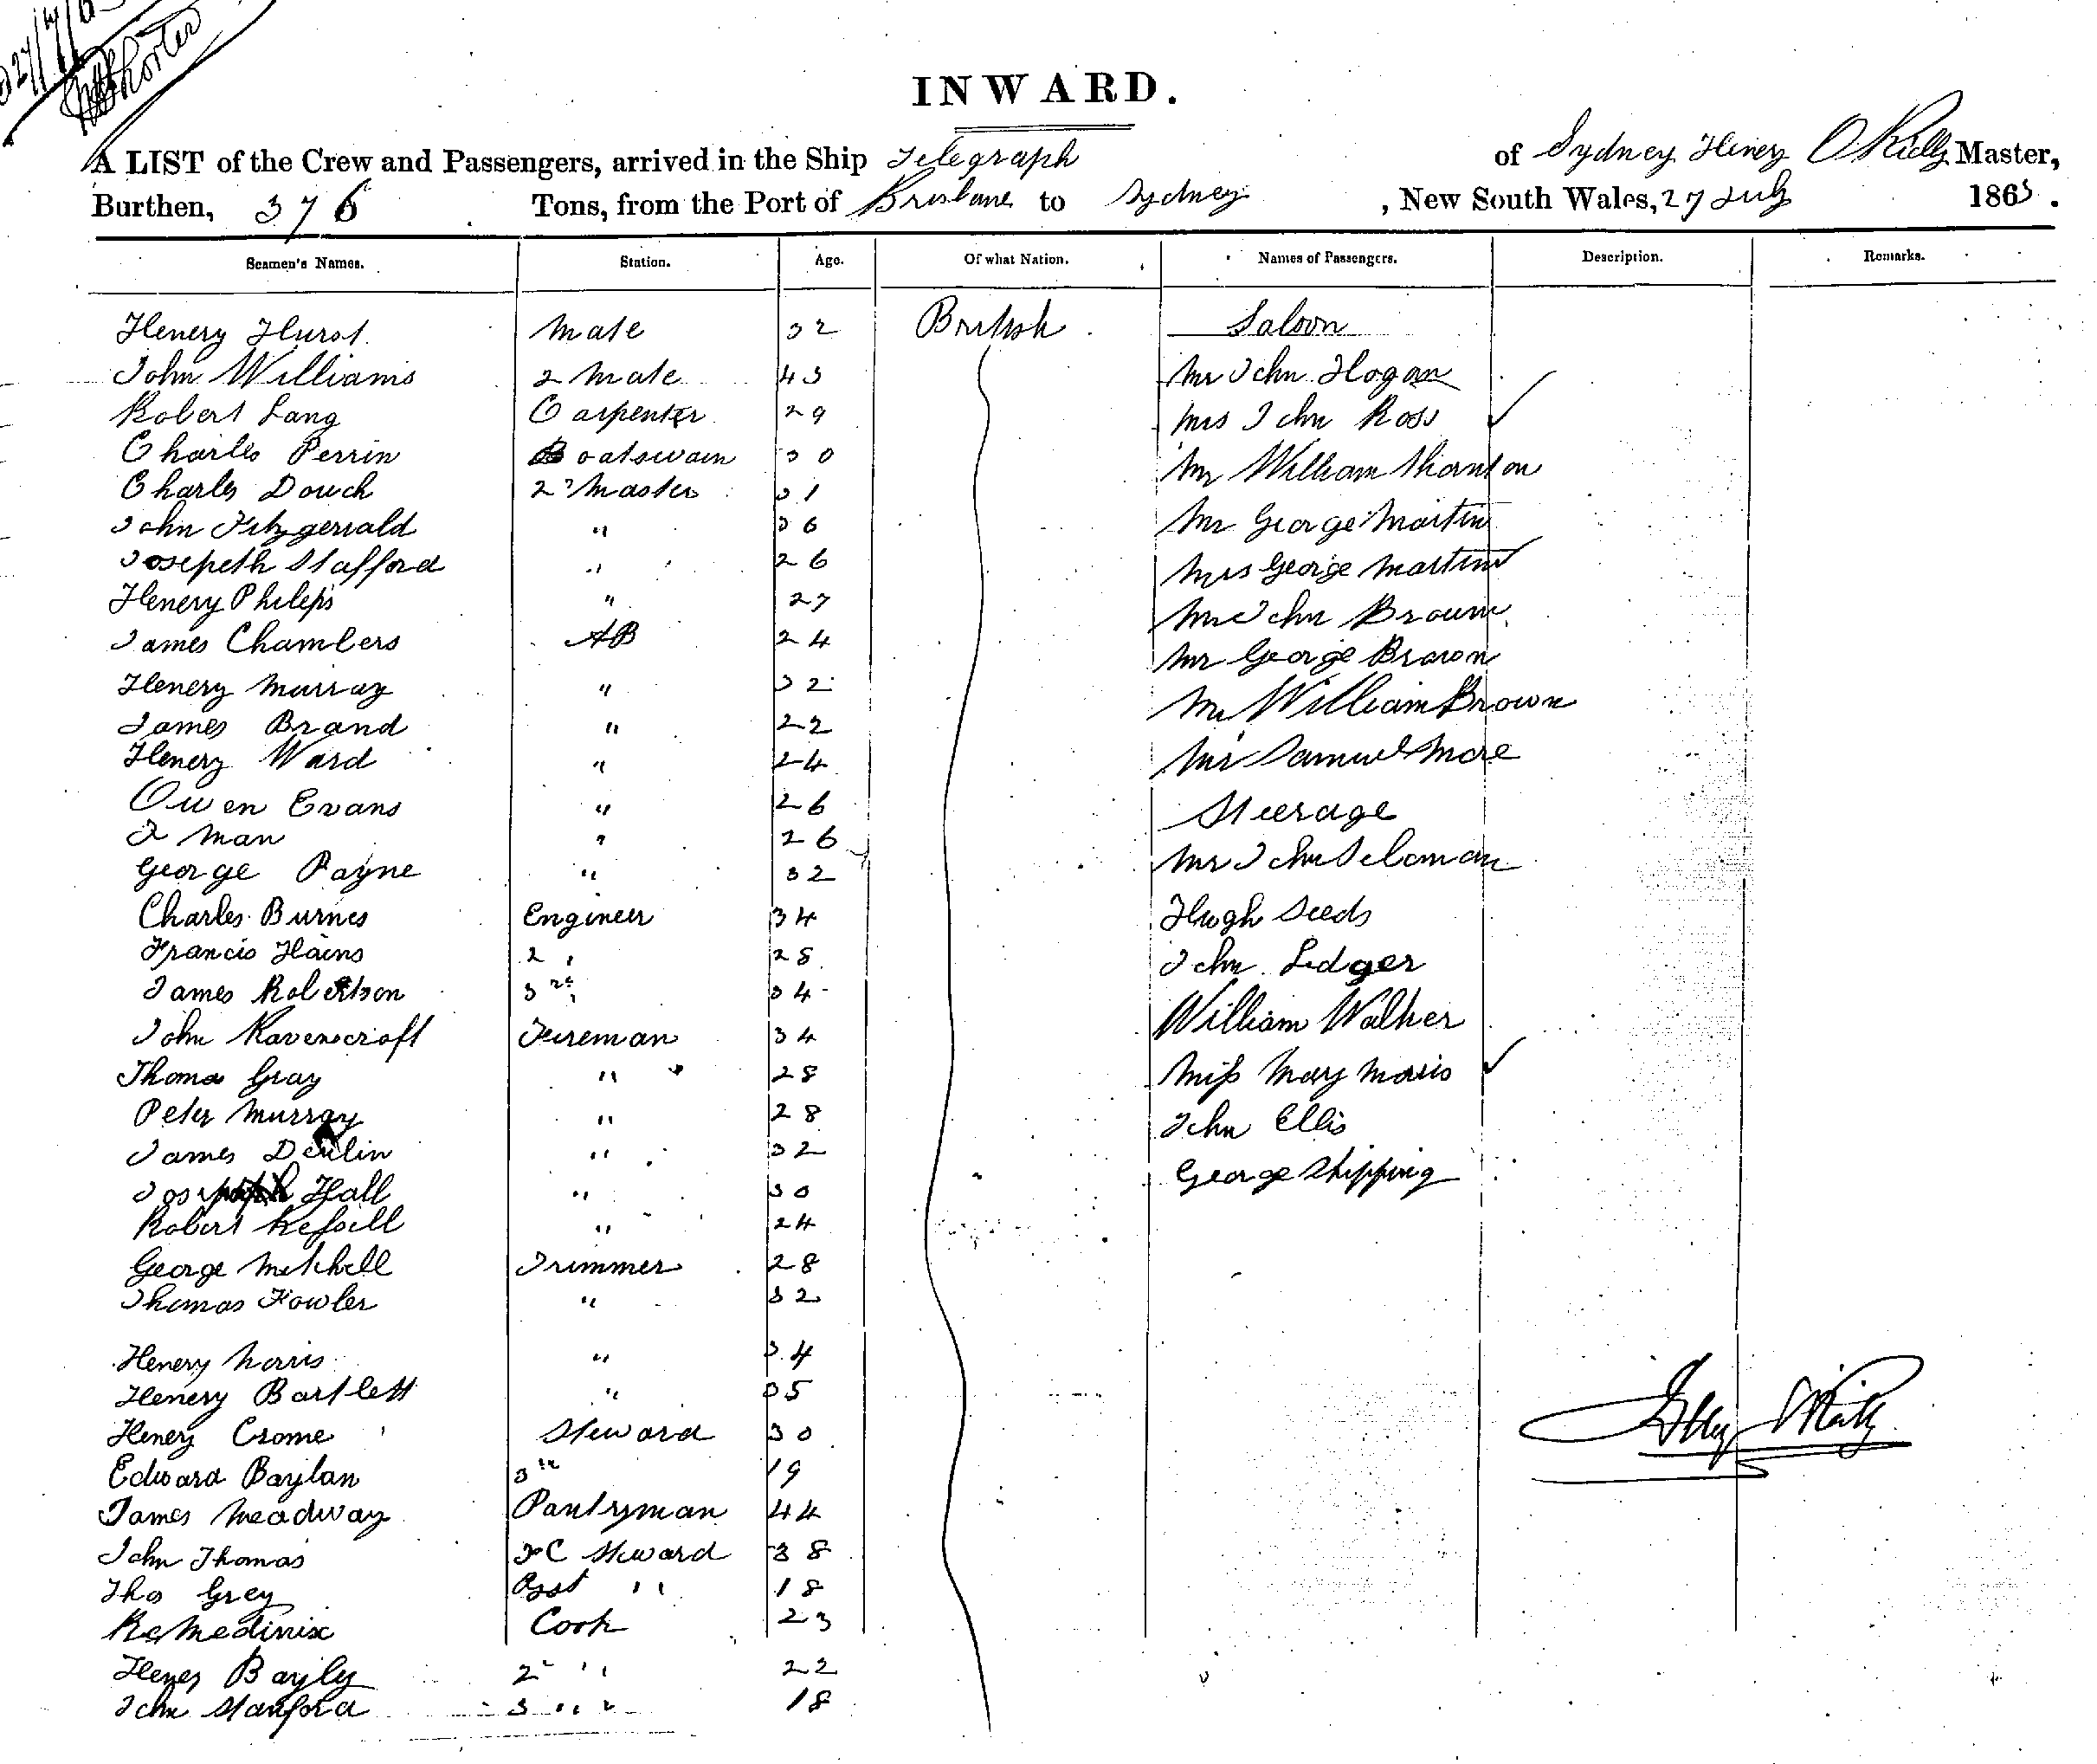 27/7/63
INWARD.
A LIST of the Crew and Passengers, arrived in the Ship Telegraph of Sydney Henery O'Reilly Master,
Burthen, 376 Tons, from the Port of Brisbane to Sydney, New South Wales, 27 July 1863.
Seamen's Names. Station. Age. Of what Nation. Names of Passengers. Description. Remarks.
Henery Hurst Mate 32 British Saloon
John Williams 2 Mate 43 Mr John Hogan
Robert Lang Carpenter 29 Mrs John Ross ✓
Charles Perrin Boatswain 30 Mr William Thornton
Charles Douch 2 Master 31 Mr George Martin
John Fitzgerrald " 36 Mrs George Martin
Josepeth Stafford " 26 Mr John Brown
Henery Phileps " 27 Mr George Brown
James Chambers AB 24 Mr William Brown
Henery Murray " 32 Mr Samuel More
James Brand " 22 Steerage
Henery Ward " 24 Mr John Soloman
Owen Evans " 26 Hugh Seeds
A Man " 26 John Ledger
George Payne " 32 William Walker
Charles Burnes Engineer 34 Miss Mary Morris ✓
Francis Hains 2 " 28 John Ellis
James Robertson 3rd " 34 George Shipping
John Ravenscroft Fireman 34
Thomas Gray " 28
Peter Murray " 28
James Devlin " 32
Joseph Hall " 30
Robert " 24
George Mitchell Trimmer 28
Thomas Fowler " 32
Henery Norris " 34
Henery Bartlett " 35
Henery Crome Steward 30
Edward Baylan 3rd 19
James Meadway Pantryman 44
John Thomas Steward 38
Thos Grey Asst " 18
Cook 23
Henery Bayley 2 " 22
John Stanford 3 " 18